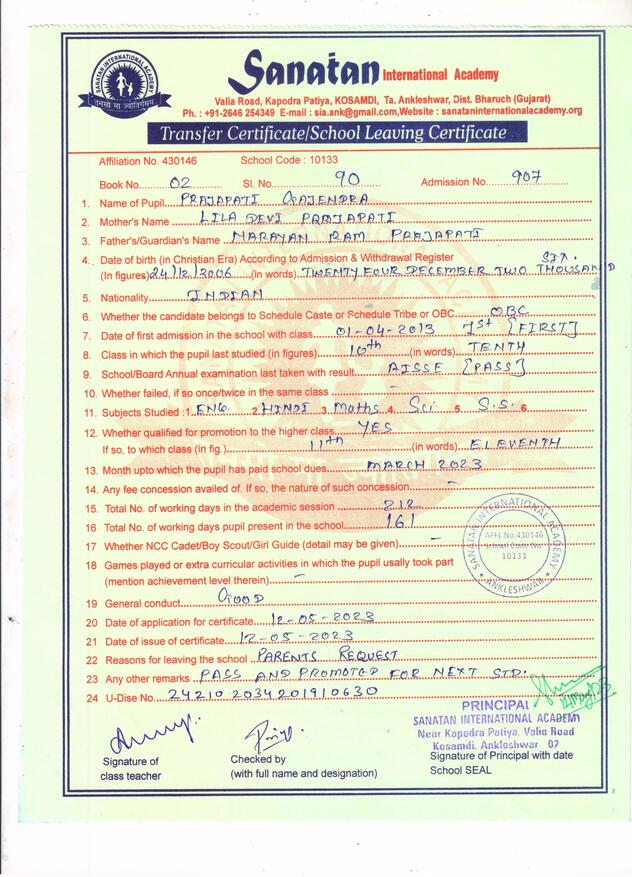 SANATAN INTERNATIONAL ACADEMY
तमसो मा ज्योतिर्गमय
Sanatan International Academy
Valia Road, Kapodra Patiya, KOSAMDI, Ta. Ankleshwar, Dist. Bharuch (Gujarat)
Ph. : +91-2646 254349 E-mail : sia.ank@gmail.com,Website : sanataninternationalacademy.org
Transfer Certificate/School Leaving Certificate
Affiliation No. 430146 School Code : 10133
Book No. 02 Sl. No. 90 Admission No. 907
1. Name of Pupil PRAJAPATI GAJENDRA
2. Mother's Name LILA DEVI PRAJAPATI
3. Father's/Guardian's Name NARAYAN RAM PRAJAPATI
4. Date of birth (in Christian Era) According to Admission & Withdrawal Register SIX.
(In figures) 24/12/2006 (in words) TWENTY FOUR DECEMBER TWO THOUSAND
5. Nationality INDIAN
6. Whether the candidate belongs to Schedule Caste or Schedule Tribe or OBC OBC
7. Date of first admission in the school with class 01-04-2013 1st [FIRST]
8. Class in which the pupil last studied (in figures) 10th (in words) TENTH
9. School/Board Annual examination last taken with result AISSE [PASS]
10. Whether failed, if so once/twice in the same class -
11. Subjects Studied : 1. ENG. 2. HINDI 3. Maths 4. Sci 5. S.S. 6.
12. Whether qualified for promotion to the higher class YES
If so, to which class (in fig.) 11th (in words) ELEVENTH
13. Month upto which the pupil has paid school dues MARCH 2023
14. Any fee concession availed of. If so, the nature of such concession -
15. Total No. of working days in the academic session 212
16 Total No. of working days pupil present in the school 161
17 Whether NCC Cadet/Boy Scout/Girl Guide (detail may be given) -
18 Games played or extra curricular activities in which the pupil usally took part
(mention achievement level therein) -
19 General conduct GOOD
20 Date of application for certificate 12-05-2023
21 Date of issue of certificate 12-05-2023
22 Reasons for leaving the school PARENTS REQUEST
23 Any other remarks PASS AND PROMOTED FOR NEXT STD.
24 U-Dise No. 24210 2034201910630
SANATAN INTERNATIONAL ACADEMY
AFFL No.430146
School Code No.
10133
* ANKLESHWAR *
PRINCIPAL
SANATAN INTERNATIONAL ACADEMY
Near Kapodra Patiya, Valia Road
Kosamdi, Ankleshwar 02
Signature of
class teacher
Checked by
(with full name and designation)
Signature of Principal with date
School SEAL